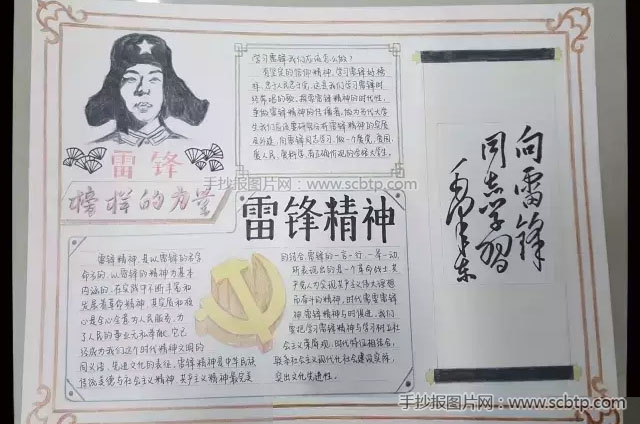 学习雷锋我们应该怎么做？
有坚定的信仰精神，学习雷锋好榜
样，忠于人民忠于党，这是我们学习雷锋时
雷锋
榜样的力量
雷锋精神
向雷锋
同志学习
毛泽东
雷锋精神，是以雷锋的名字
命名的，以雷锋的精神为基本
内涵的，在实践中不断丰富和
发展着革命精神，其实质和核
心是全心全意为人民服务，为
了人民的事业无私奉献，它已
经成为我们这个时代精神文明的
同义语，先进文化的表征，雷锋精神是中华民族
传统美德与社会主义精神，共产主义精神最完美
的结合，雷锋的一言一行，一举一动，
所表现出的是一个革命战士，共
产党人为实现共产主义伟大理想
而奋斗的精神，时代需要雷锋精
神，雷锋精神与时俱进，我们
要把学习雷锋精神与学习树立社
会主义荣辱观，时代特征相结合，
联系社会主义现代化社会建设实际，
突出文化先进性。
手抄报图片网：www.scbtp.com
手抄报图片网：www.scbtp.com